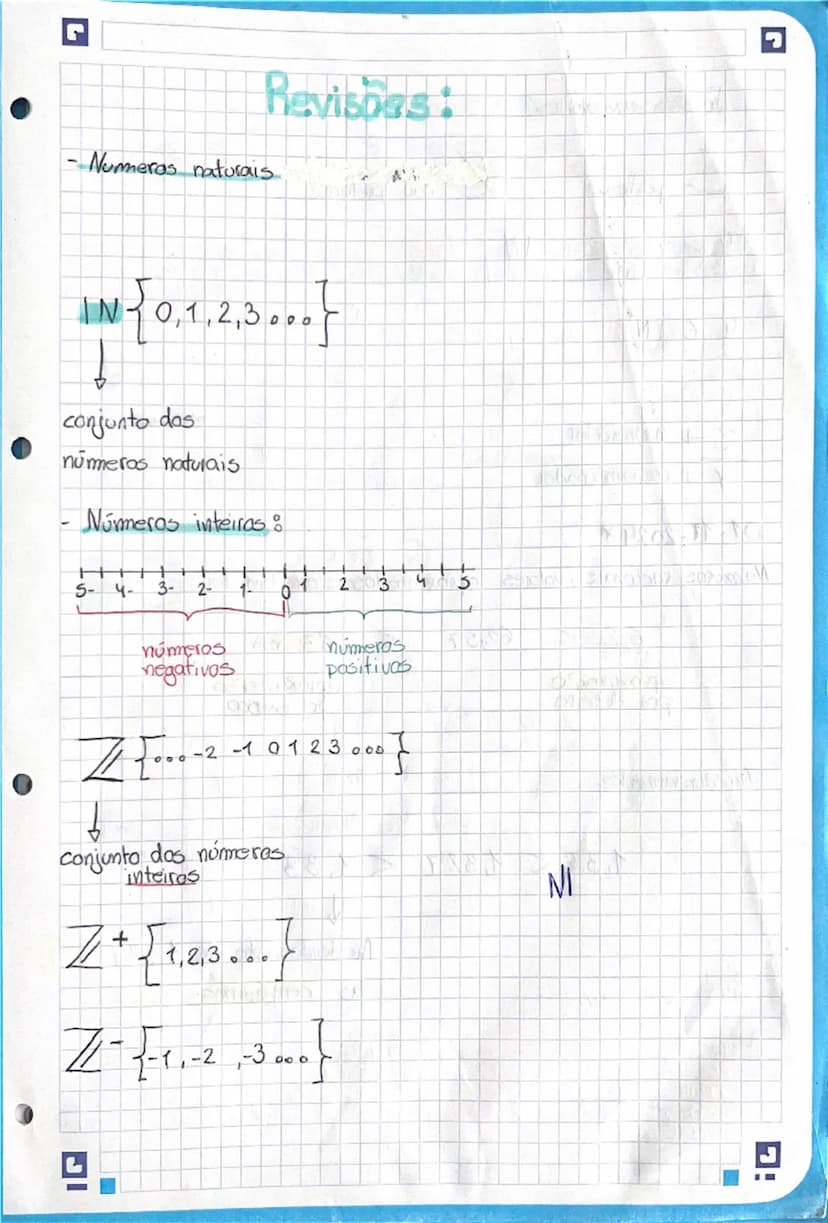 Revisões:
- Numeros naturais
IN {0,1,2,3...}
conjunto dos
números naturais
- Números inteiros:
5- 4- 3- 2- 1- 0 1 2 3 4 5
números
negativos
números
positivos
ℤ {...-2 -1 0 1 2 3 ...}
conjunto dos números
inteiros
NI
ℤ⁺ {1,2,3...}
ℤ⁻ {-1,-2,-3...}